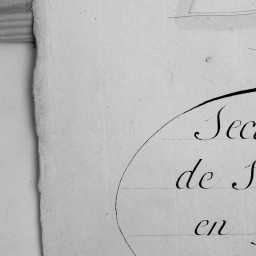 Sec
de S
en